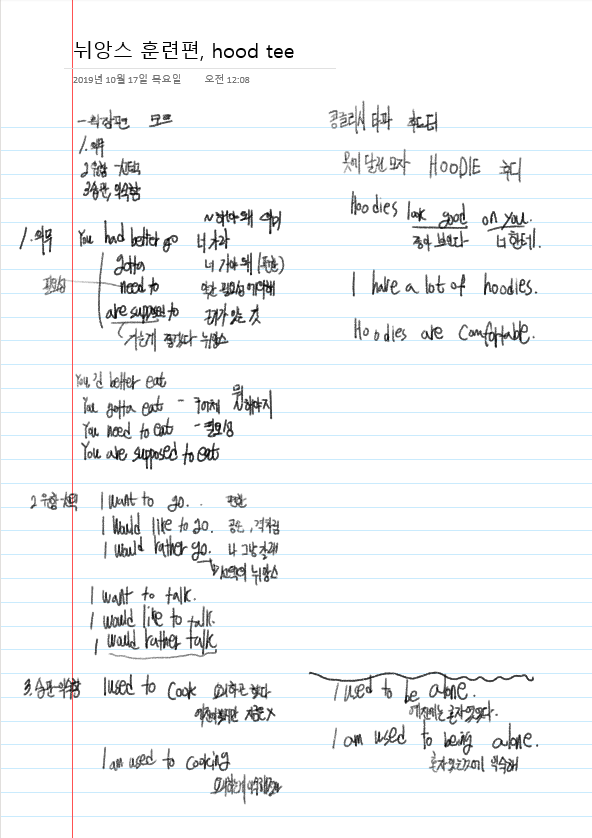 뉘앙스 훈련편, hood tee
2019년 10월 17일 목요일 오전 12:08
- 확장편 모드
1. 의무
2 유형 선택
3 습관, 익숙함
1. 의무
~해야 돼
You had better go 너 가라
gotta 너 가야 돼 (편한)
필요성
need to 약간 필요성에 의해
are supposed to
가는게 좋겠다 뉘앙스
better eat
You gotta eat -
You need to eat - 필요성
You are supposed to eat
2
I want to go. . 편한
I would like to go. 공손, 격식
I would rather go. 나 그냥 갈래
선택의 뉘앙스
I want to talk.
I would like to talk.
I would rather talk
3. 습관 익숙함
I used to cook 요리하곤 했다
예전에 했지만 지금은 X
I am used to cooking
요리하는게 익숙하다
콩글리시 타파 후드티
옷에 달린 모자 HOODIE 후디
Hoodies look good on you.
좋아 보인다 너한테.
I have a lot of hoodies.
Hoodies are comfortable.
I used to be alone.
예전에는 혼자 있었다.
I am used to being alone.
혼자 있는것에 익숙해